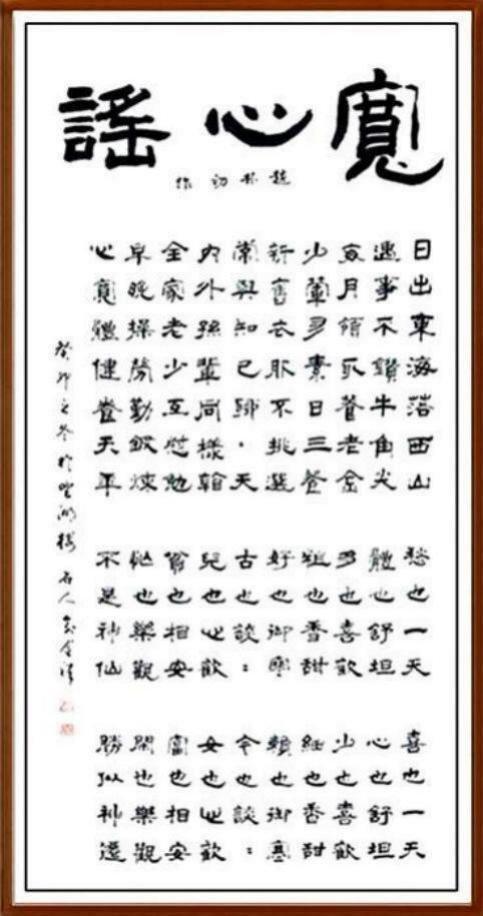 寬心謠
趙朴初 作
日出東海落西山 愁也一天 喜也一天
遇事不鑽牛角尖 體也舒坦 心也舒坦
每月領取養老金 多也喜歡 少也喜歡
少葷多素日三餐 粗也香甜 細也香甜
新舊衣服不挑選 好也御寒 賴也御寒
常與知己聊·天 古也談： 今也談：
內外孫輩同樣 兒也心歡 女也心歡
全家老少互慰勉 貧也相安 富也相安
早晚操勞勤鍛煉 忙也樂觀 閑也樂觀
心寬體健養天年 不是神仙 勝似神僊
癸卯之冬於望湖樓 石人